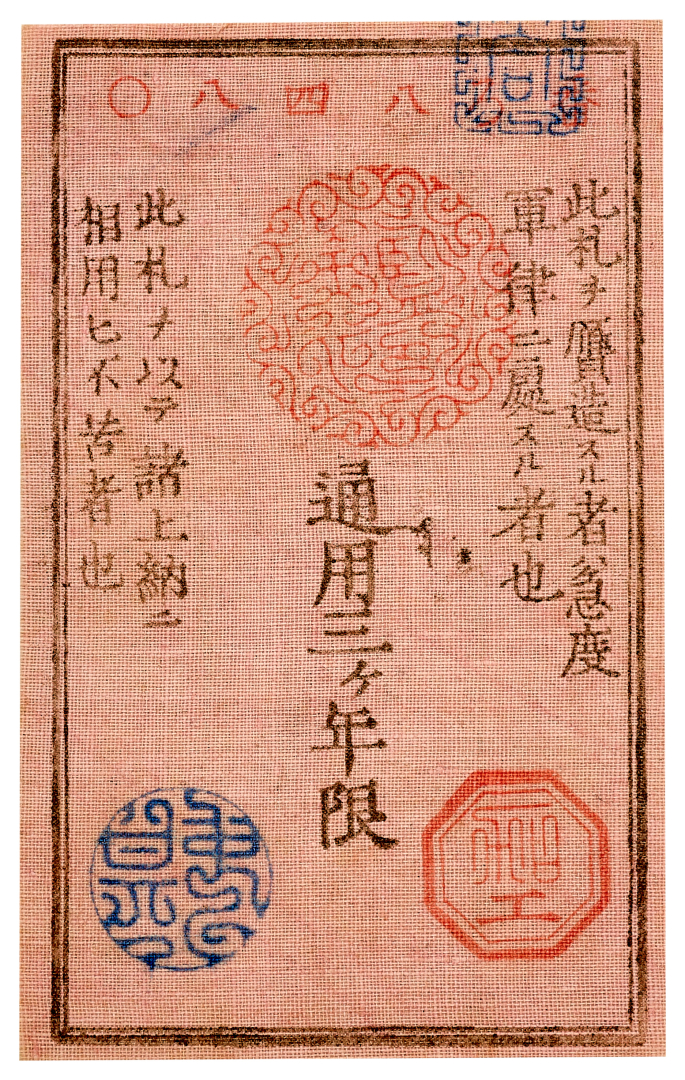 八四八〇
此札ヲ贋造スル者ハ急度
軍律ニ處スル者也
通用三ケ年限
此札ヲ以テ諸上納ニ
相用ヒ不苦者也